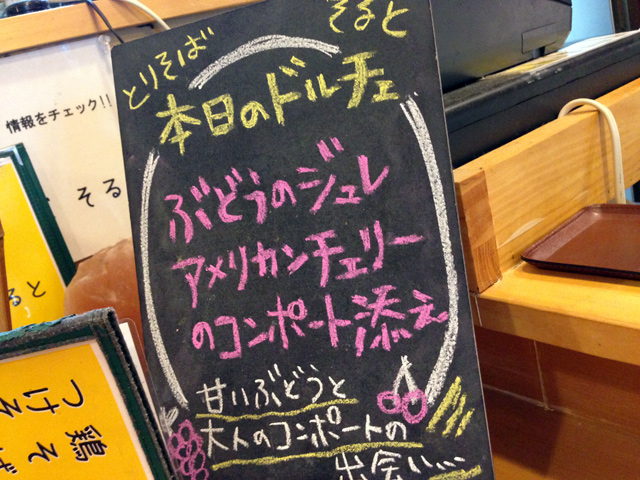 とりそば
そると
本日のドルチェ
ぶどうのジュレ
アメリカンチェリー
のコンポート添え
甘いぶどうと
大人のコンポートの
出会い…
情報をチェック!!
そる
ると
鶏そば
つけそ